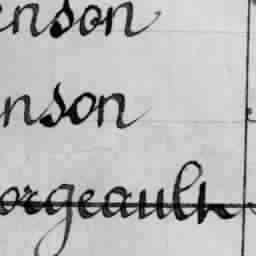 enson
nson
orgeault